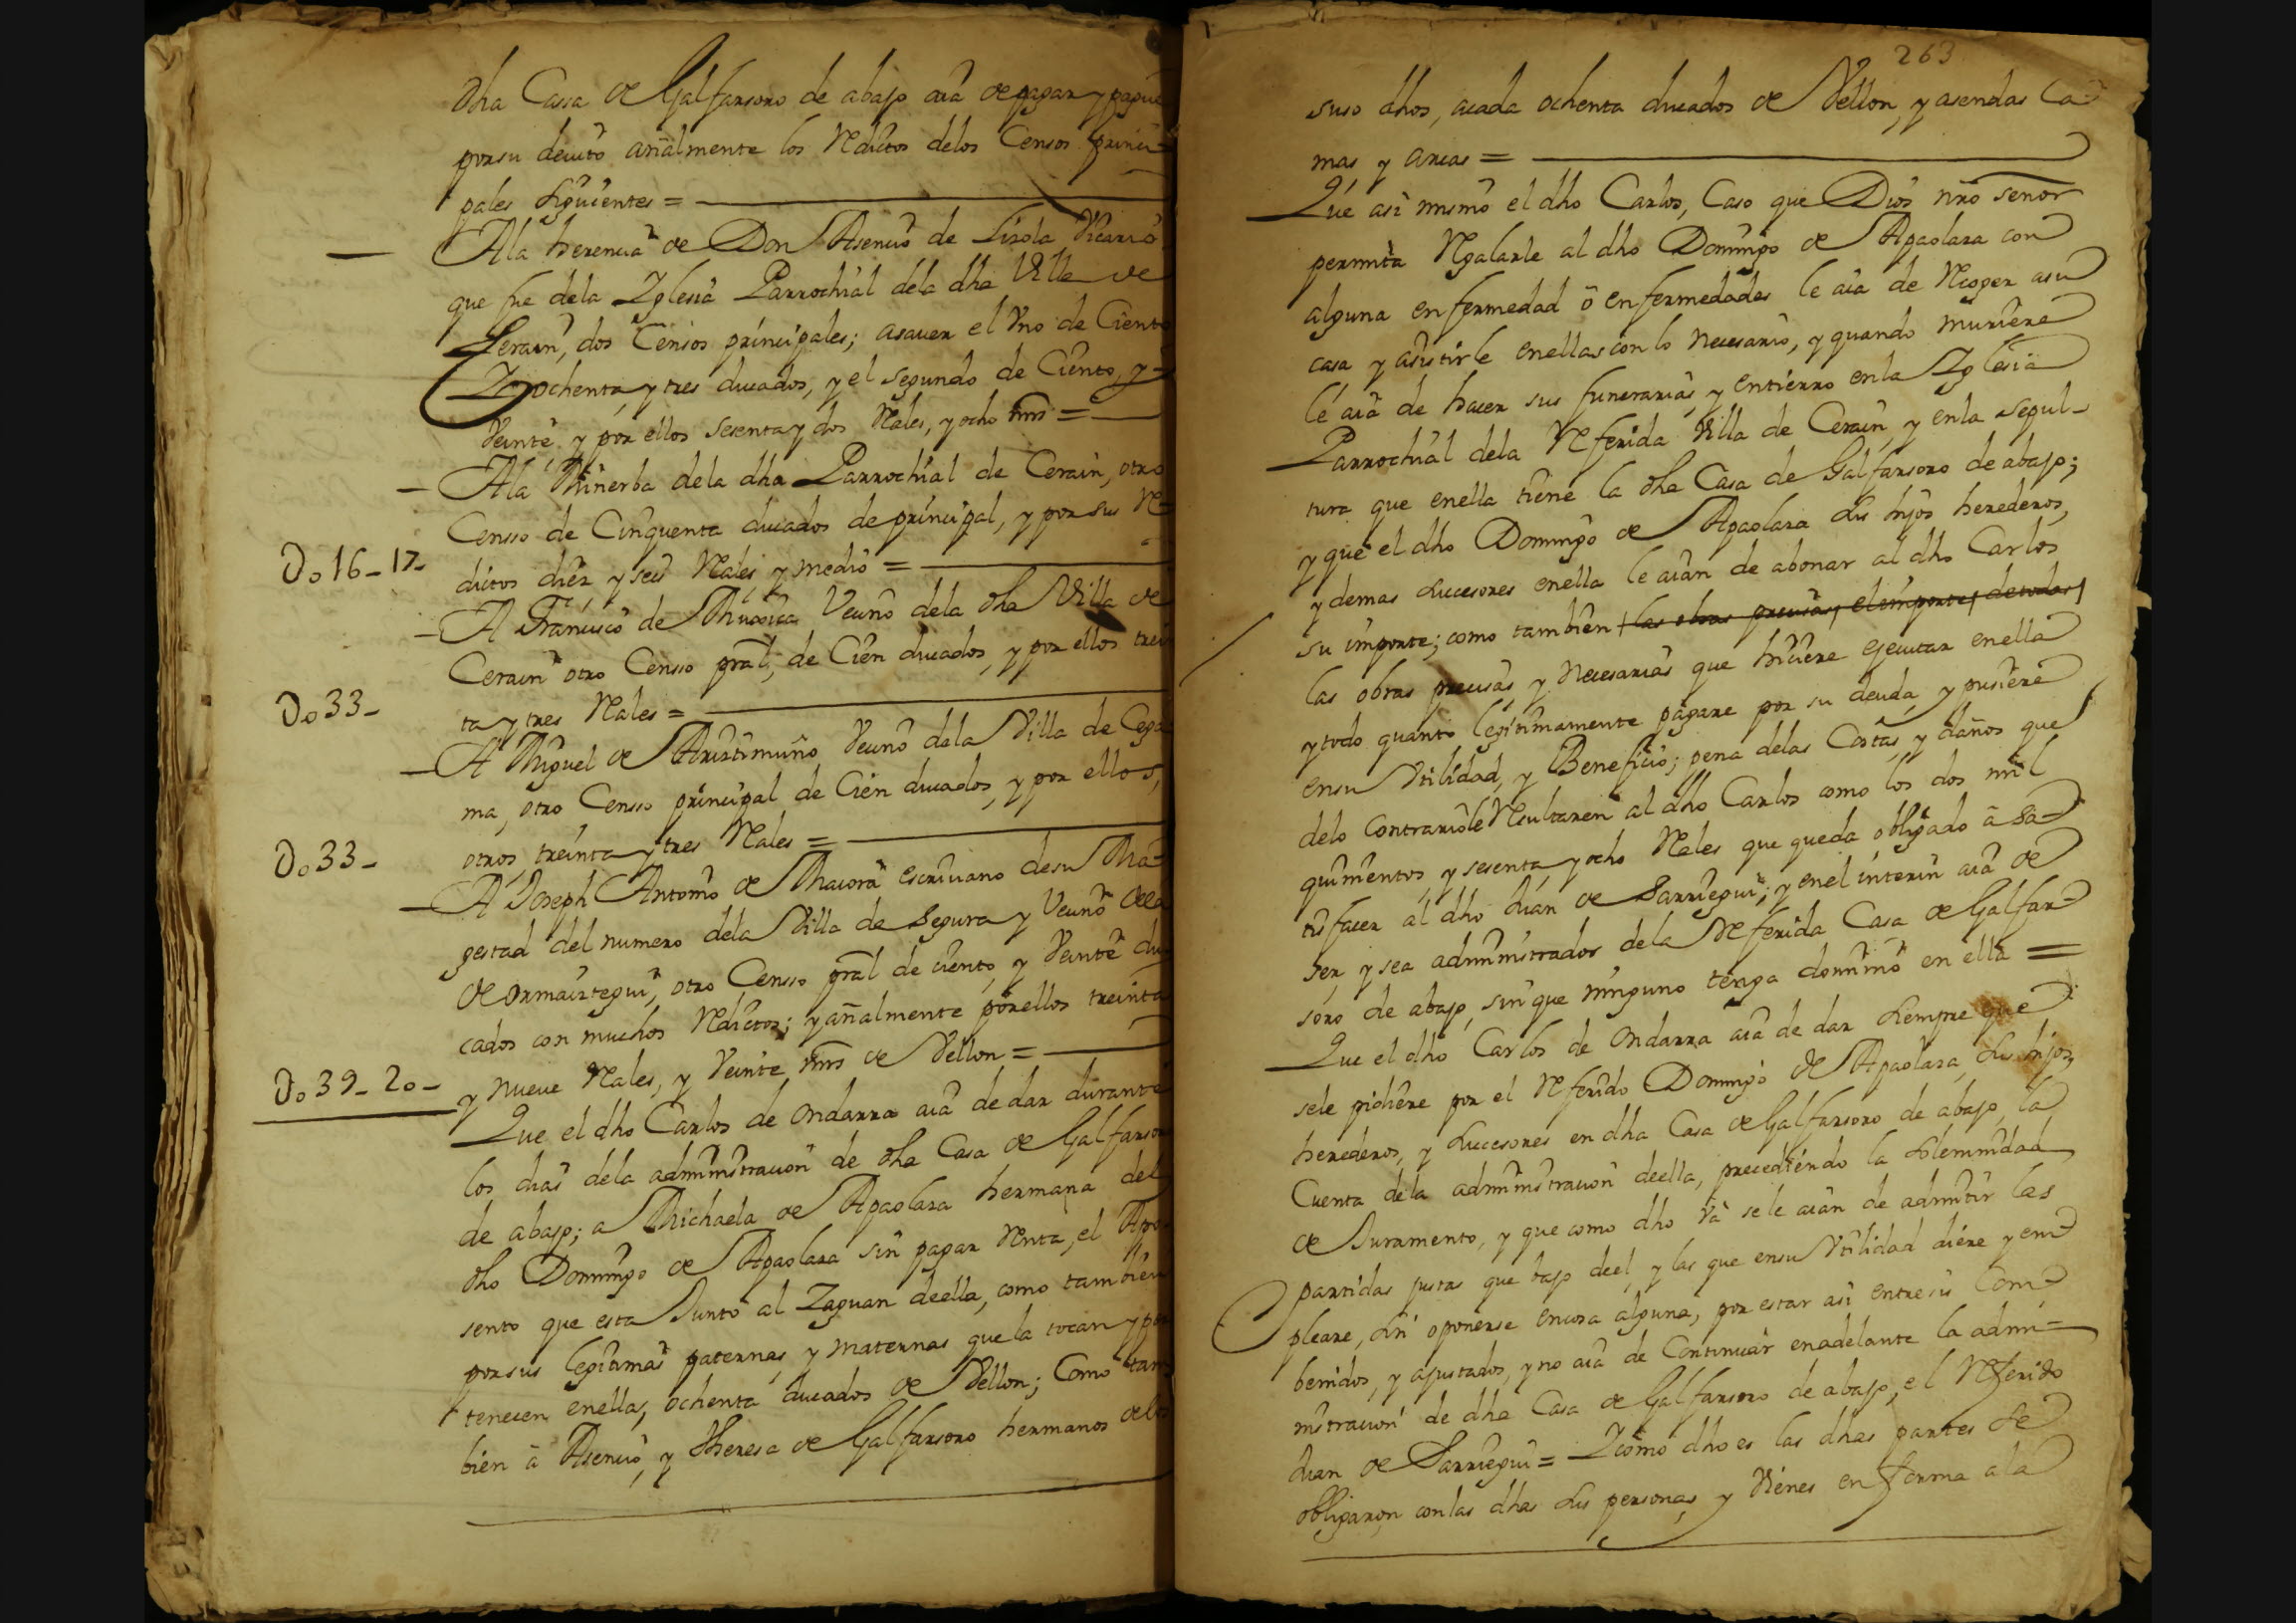 dha Cassa de Galfarsoro de abajo aia de pagar y pague
por su deuito añalmente los Reditos delos Censos princi=
pales siguientes =
Ala herencia de Don Asencio de Lizola Vicario
que fue dela Yglesia Parrochial dela dha Villa de
Zerain, dos Censos principales; asauer el Vno de Ciento
y ochenta y tres ducados, y el segundo de Ciento, y
Veinte, y por ellos sesenta y dos Reales, y ocho mrs =
Ala Minerba dela dha Parrochial de Cerain, otro
Censso de Cinquenta ducados de principal, y por sus Re
Do 16 - 17 -
ditos diez, y seis Reales, y medio =
A Francisco de Vecino dela dha Villa de
Cerain otro Censso pral, de Cien ducados, y por ellos trein
Do 33 -
ta y tres Reales =
A Miguel de Aristimuño Vecino dela Villa de Cega
ma, otro Censso principal de Cien ducados, y por ellos,
Do 33 -
otros, treinta y tres Reales =
A Joseph Antonio de Maiora escriuano desu Ma=
gestad del numero dela Villa de Segura y Vecino dela
de Ormaiztegui, otro Censso pral de ciento, y Veinte du
cados con muchos Reditos; y añalmente por ellos treinta
Do 39 - 20 -
y nueue Reales, y Veinte mrs de Vellon =
Que el dho Carlos de Ondarra aia de dar durante
los dias dela administracion de dha Casa de Galfarsoro
de abajo; a Michaela de Apaolara hermana del
dho Domingo de Apaolara sin pagar Renta, el Apo-
sento que esta Junto al Zaguan deella, como tambien
por sus legitimas paternas, y maternas que la tocan y per
tenecen enellas, ochenta ducados de Vellon; Como tam
bien â Asencio, y Theresa de Galfarsoro hermanos delos
263
suso dhos, acada ochenta ducados de Vellon, y asendas Ca=
mas, y arcas =
Que asi mismo el dho Carlos, Caso que Dios nro señor
permita Regalarle al dho Domingo de Apaolara con
alguna enfermedad ô enfermedades le aia de Recoger asu
casa y asistirle enellas con lo necesario, y quando muriere
le aia de hacer sus funerarias, y entierro enla Yglesia
Parrochial dela Referida Villa de Cerain, y enla sepul-
tura que enella tiene la dha Casa de Galfarsoro de abajo;
y que el dho Domingo de Apaolara sus hijos herederos,
y demas suceesores enella le aian de abonar al dho Carlos
su importe; como tambien las obras precisas, el importe, de todas
las obras precisas, y necesarias que hiciere ejecutar enella
y todo quanto legitimamente pagare por su deuda, y pusiere
ensu Vtilidad, y Beneficio; pena delas Costas, y daños que
delo contrario le Resultaren al dho Carlos como los dos mil
quinientos, y sesenta, y ocho Reales que queda obligado â sa=
tisfacer al dho Juan de Sarriegui; y enel interin aia de
ser, y sea administrador dela Referida Casa de Galfar=
soro de abajo, sin que ninguno tenga dominio en ella =
Que el dho Carlos de Ondarra aia de dar siempre que
sele pidiere por el Referido Domingo de Apaolara, sus hijos,
herederos, y succesores en dha Casa de Galfarsoro de abajo, la
Cuenta dela administracion deella, precediendo la solemnidad
de Juramento, y que como dho Va sele aian de admitir las
partidas justas que bajo deel, y las que ensu Vtilidad diere y em=
pleare, sin oponerse encosa alguna, por estar asi entresi Com=
benidos, y ajustados, y no aia de Continuar enadelante la admi=
nistracion de dha Casa de Galfarsoro de abajo, el Referido
Juan de Sarriegui = Y como dho es las dhas partes se
obligaron con las dhas sus personas, y Vienes en forma ala